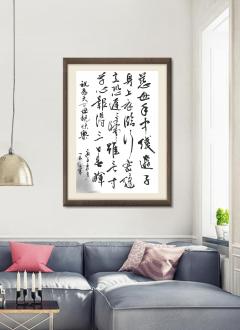 慈母手中線遊子
身上衣臨行密密縫
意恐遲遲歸誰言寸
草心報得三春暉
祝天下母親快樂